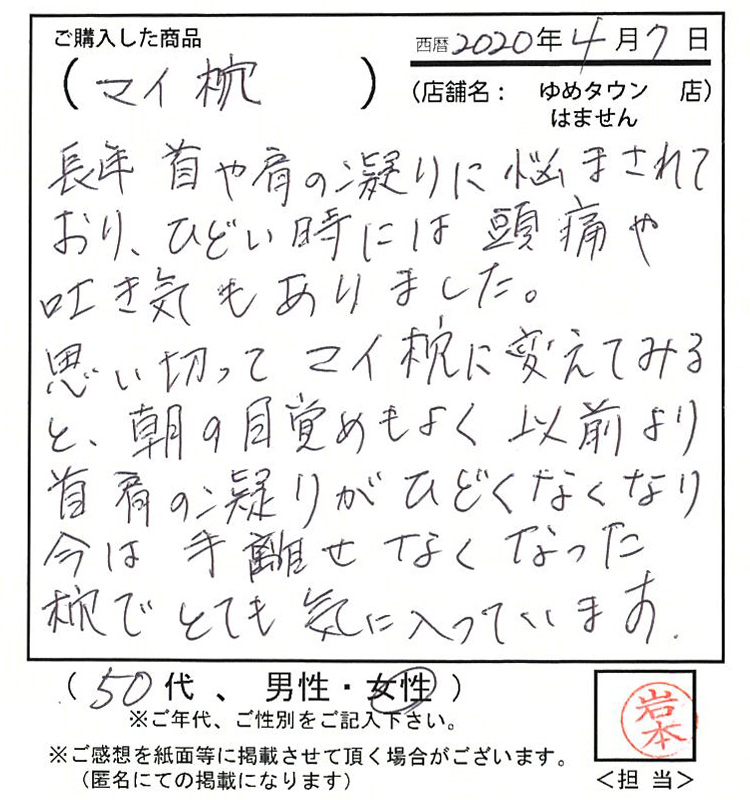 ご購入した商品
西暦2020年4月7日
(マイ枕)
(店舗名： ゆめタウンはません 店)
長年 首や肩の凝りに悩まされて
おり、ひどい時には 頭痛や
吐き気もありました。
思い切って マイ枕に変えてみる
と、朝の目覚めもよく 以前より
首肩の凝りがひどくなくなり
今は 手離せなくなった
枕でとても気に入っています.
(50代 、 男性・女性)
※ご年代、ご性別をご記入下さい。
※ご感想を紙面等に掲載させて頂く場合がございます。
(匿名にての掲載になります)
岩本
＜担 当＞